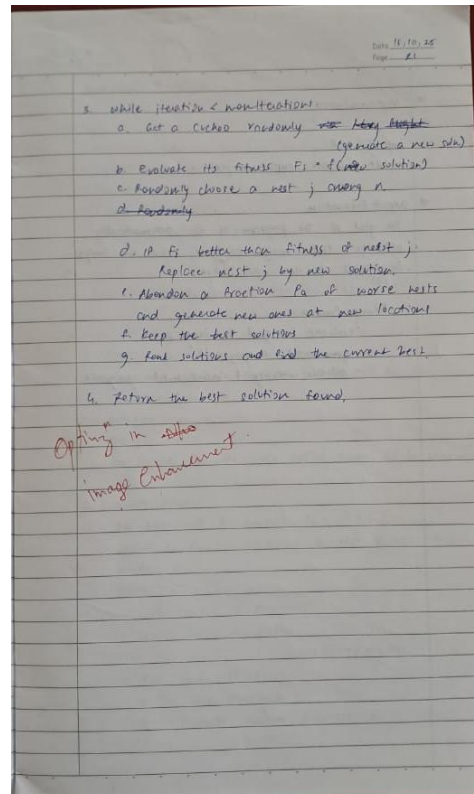 Date 15/10/25
Page 21
3. while iteration < maxIterations
a. Get a cuckoo randomly
(generate a new soln)
b. Evaluate its fitness Fi = f(new solution)
c. Randomly choose a nest j among n
d. Randomly
d. If Fi better than fitness of nest j
Replace nest j by new solution.
e. Abandon a fraction Pa of worse nests
and generate new ones at new locations
f. Keep the best solutions
g. Rank solutions and find the current best.
4. Return the best solution found.
in
image Enhancement.